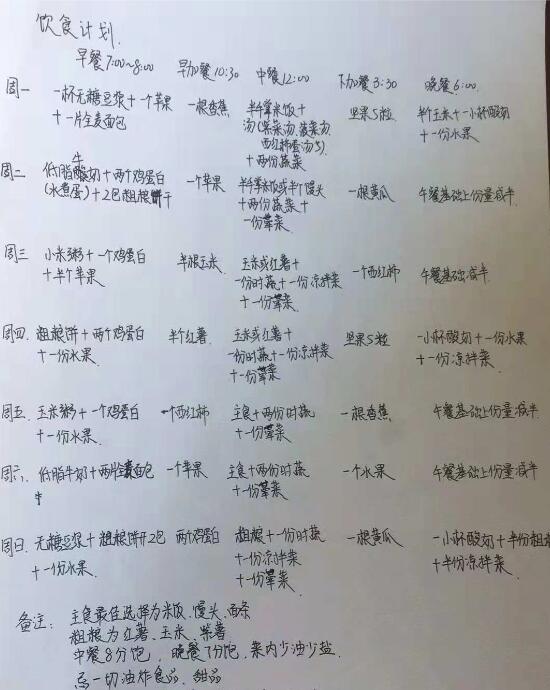 饮食计划.
早餐7:00~8:00 早加餐10:30 中餐12:00 下加餐3:30 晚餐6:00.
周一 一杯无糖豆浆+一个苹果 一根香蕉 半个掌米饭+ 坚果5粒 半个玉米+一小杯酸奶
+一片全麦面包 汤(紫菜汤.菠菜汤 +一份水果
西红柿蛋汤等)
+两份蔬菜
牛
周二. 低脂酸奶+两个鸡蛋白 一个苹果 半个掌米饭或半个馒头 一根黄瓜 午餐基础上份量减半
(水煮蛋)+2包粗粮饼干 +两份蔬菜+
一份荤菜.
周三 小米粥+一个鸡蛋白 半根玉米. 玉米或红薯+ 一个西红柿 午餐基础减半
+半个苹果 一份时蔬+一份凉拌菜
+一份荤菜.
周四. 粗粮饼+两个鸡蛋白 半个红薯. 玉米或红薯+ 坚果5粒 一小杯酸奶+一份水果
+一份水果 一份时蔬+一份凉拌菜 +一份凉拌菜
+一份荤菜
周五. 玉米粥+一个鸡蛋白 一个西红柿 主食+两份时蔬 一根香蕉 午餐基础上份量减半.
+一份水果. +一份荤菜.
周六. 低脂牛奶+两片全麦面包 一个苹果 主食+两份时蔬 一个水果 午餐基础上份量减半.
+一份荤菜.
周日. 无糖豆浆+粗粮饼干2包 两个鸡蛋白 粗粮+一份时蔬 一根黄瓜 一小杯酸奶+半份粗粮
+一份水果. +一份凉拌菜 +半份凉拌菜.
+一份荤菜
备注: 主食最佳选择为米饭.馒头.面条
粗粮为红薯.玉米.紫薯.
中餐8分饱, 晚餐7分饱.菜内少油少盐.
忌一切油炸食品.甜品